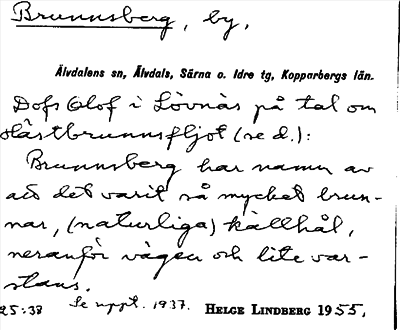 Brunnsberg, by,
Älvdalens sn, Älvdals, Särna o. Idre tg, Kopparbergs län.
Dofs Olof i Lövnäs på tal om
Hästbrunnsfljot (se d.):
Brunnsberg har namn av
att det varit så mycket brun-
nar, (naturliga) källhål,
neranför vägen och lite var-
stans.
25:38 Se uppt. 1937. HELGE LINDBERG 1955.